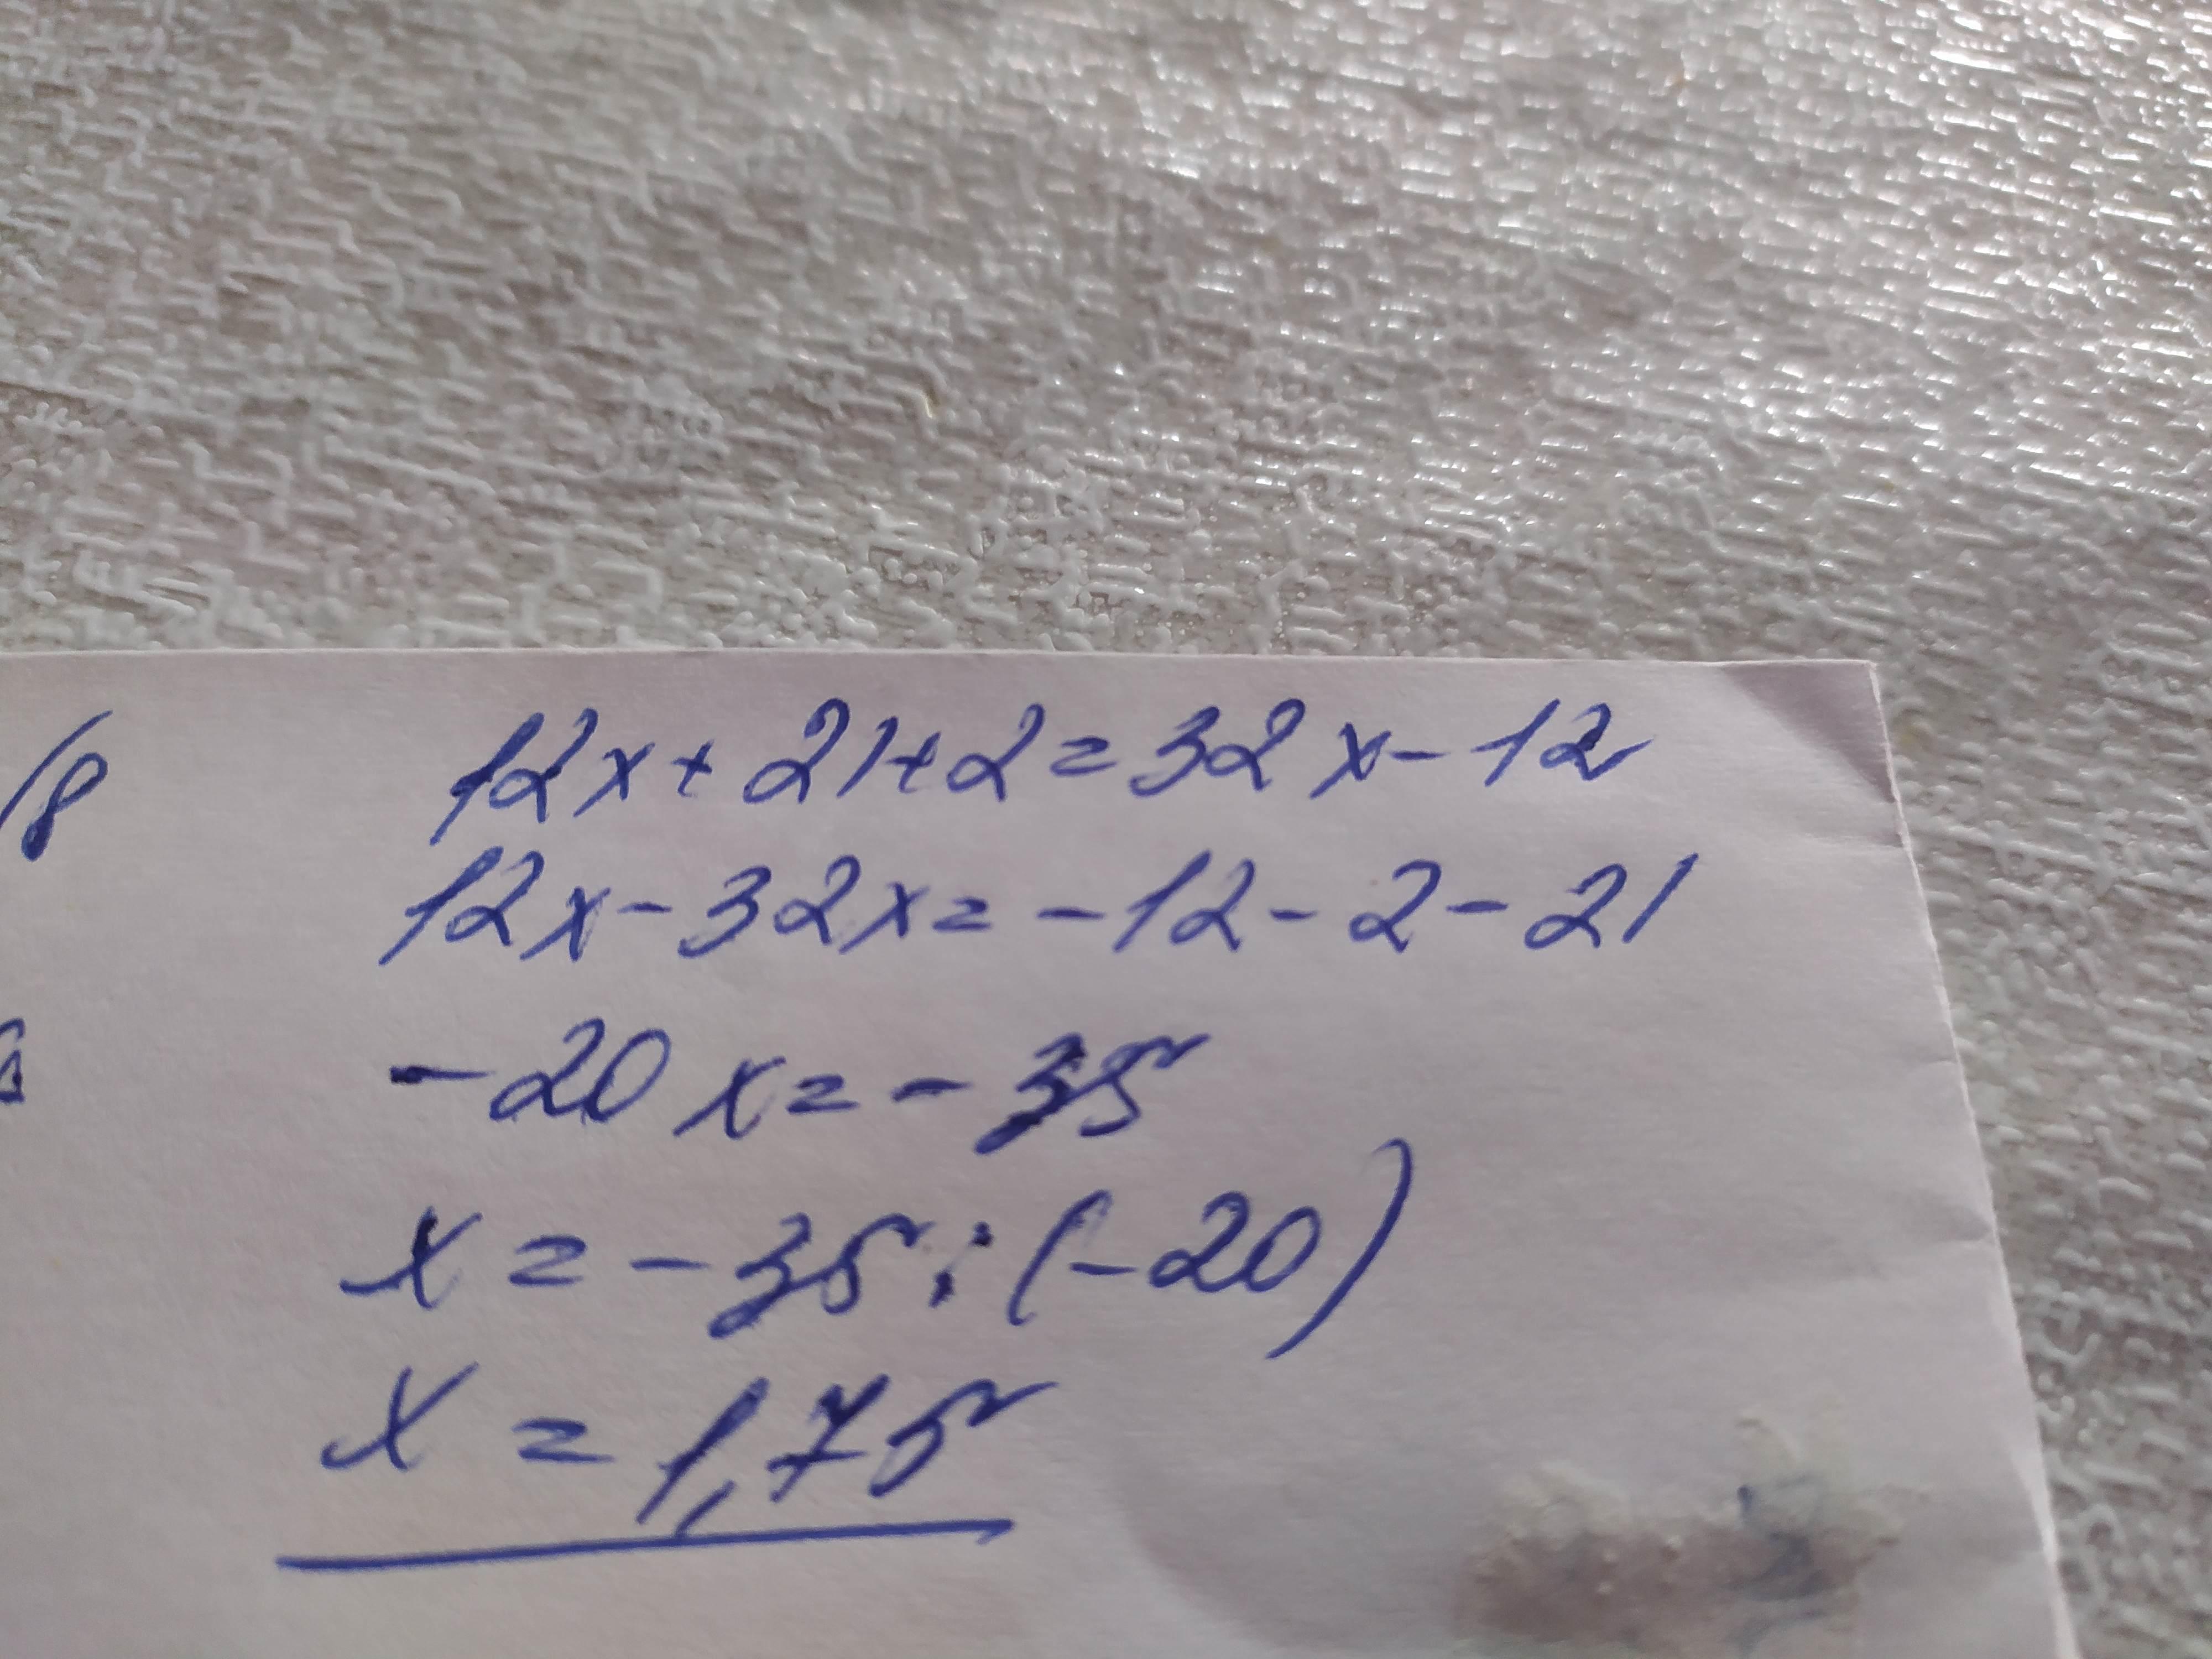 12x+21+2=32x-12
12x-32x=-12-2-21
-20x=-35
x=-35:(-20)
x=1,75